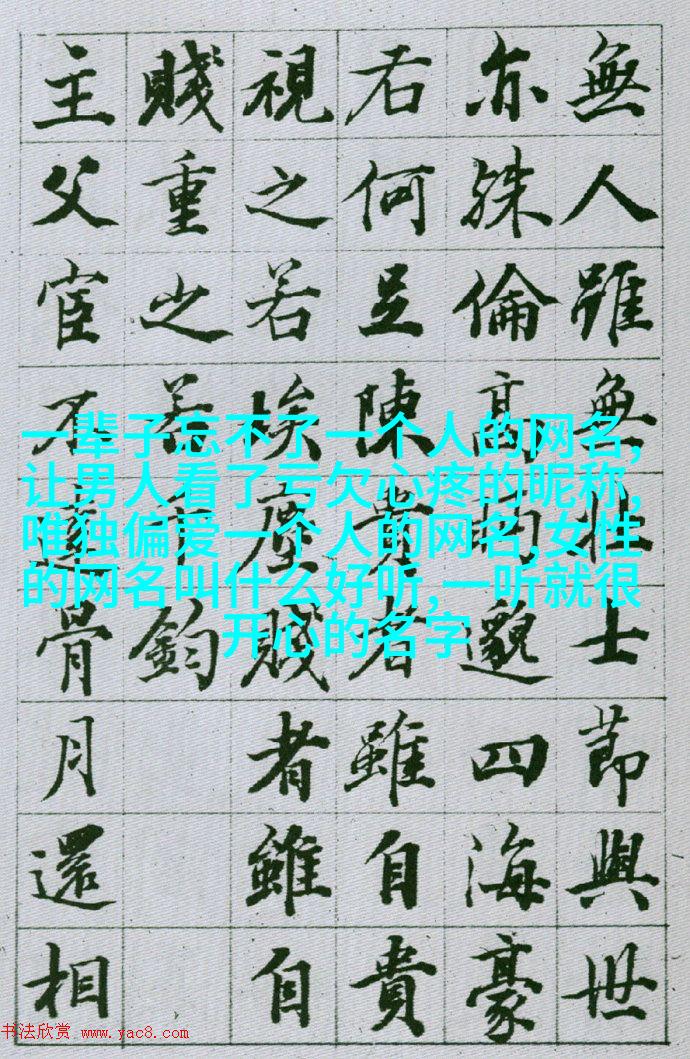 無人雖無壯士節與世
亦殊倫高眄邈四海豪
右何足陳貴者雖自貴
視之若埃塵賤者雖自
賤重之若千鈞
主父宦不達骨月還相
一辈子忘不了一个人的网名,
让男人看了亏欠心疼的昵称,
唯独偏爱一个人的网名,女性
的网名叫什么好听,一听就很
开心的名字
书法欣赏 www.yac8.com